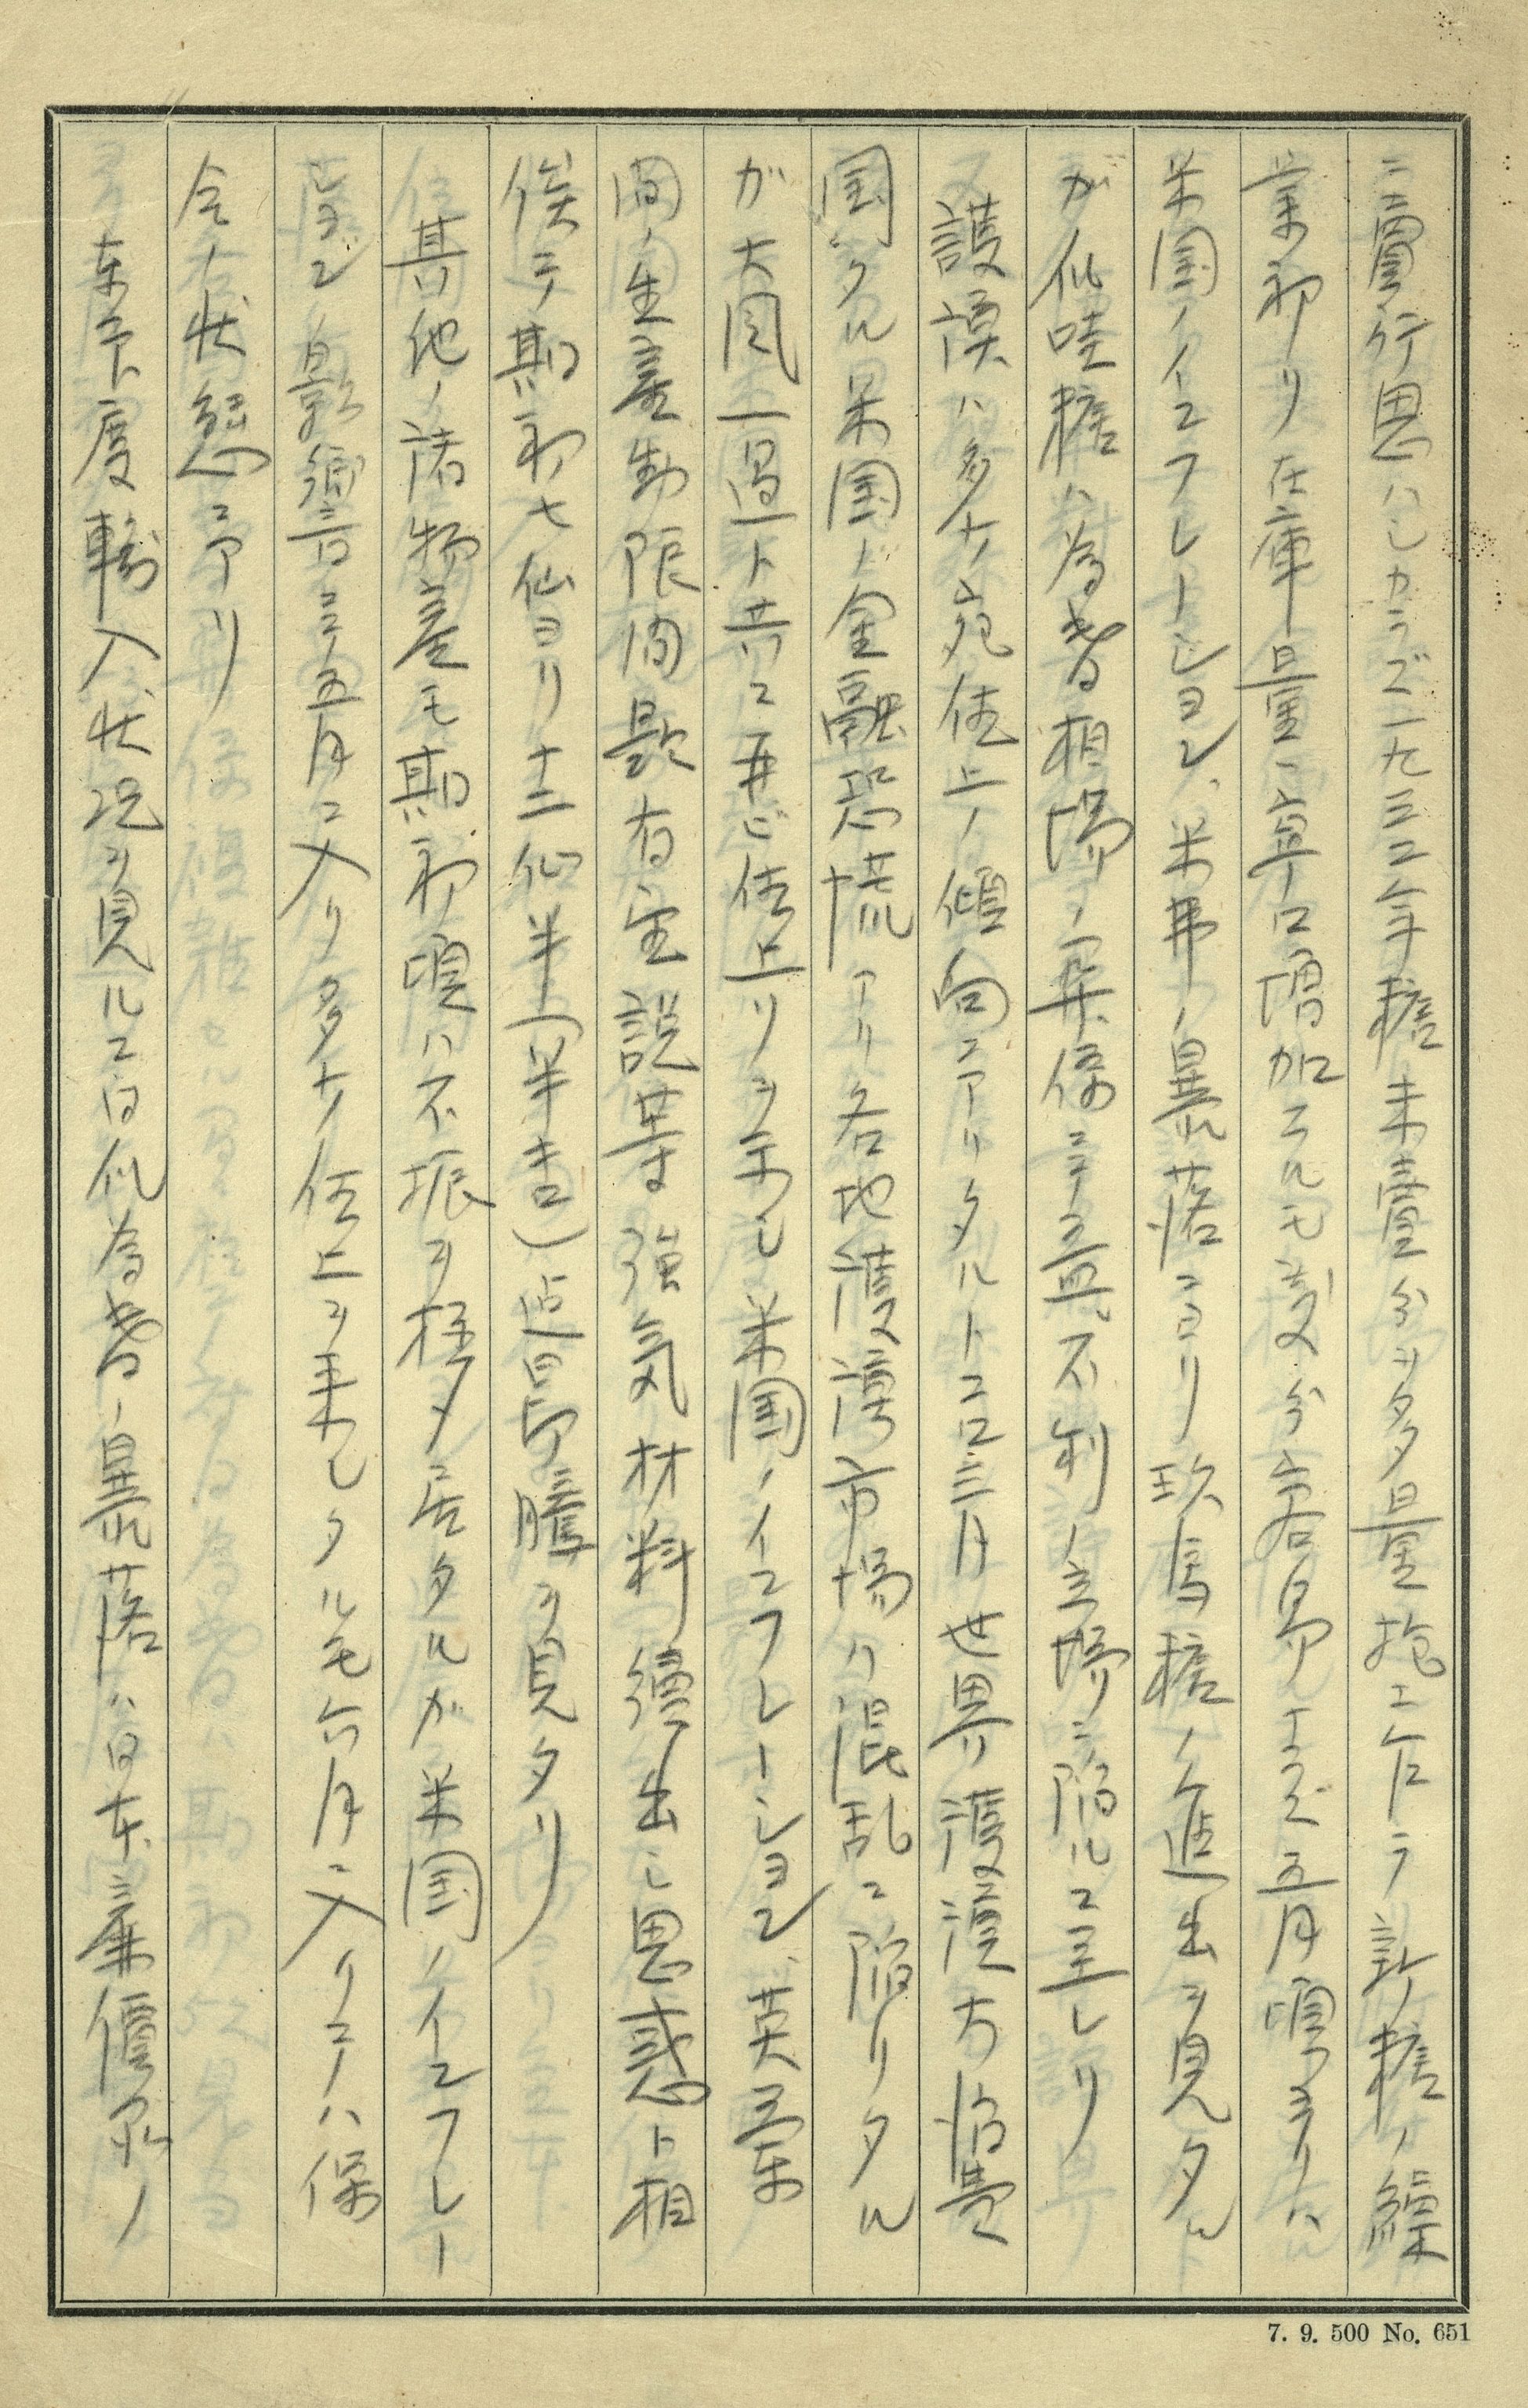 ニ賣行思ハシカラズ一九三二年糖未壹分ヲ多量抱エ乍ラ新糖ノ繰
業初リ在庫量ハ寧ロ増加スルモ處分容易ナラズ五月頃ヨリハ
米国ノインフレーション、米弗ノ暴落ニヨリ玖馬糖ノ進出ヲ見タルト
ガ瓜哇糖ハ為替相場ノ関係ニテ益〻不利ノ立場ニ陥ルニ至レリ
護謨ハ多少宛値上ノ傾向ニアリタルトコロ三月世界護謨大消費
国タル米国ニ金融恐慌アリ各地護謨市場ハ混乱ニ陥リタル
ガ大風一過ト共ニ再ビ値上リヲ示シ米国ノインフレーション、英蘭
間ノ生産制限問題有望説等強気材料續出シ思惑ト相
俟テ期初七仙ヨリ十二仙半(半キロ)迄昂騰ヲ見タリ
其他ノ諸物産モ期初頃ハ不振ヲ極メ居タルガ米国ノインフレー
ションノ影響ニテ五月ニ入リ多少値上ヲ来シタルモ六月ニ入リテハ保
合ノ状態ニアリ
東印度輸入状況ヲ見ルニ日仏為替ノ暴落ハ日本廉價品ノ
7. 9. 500 No. 651